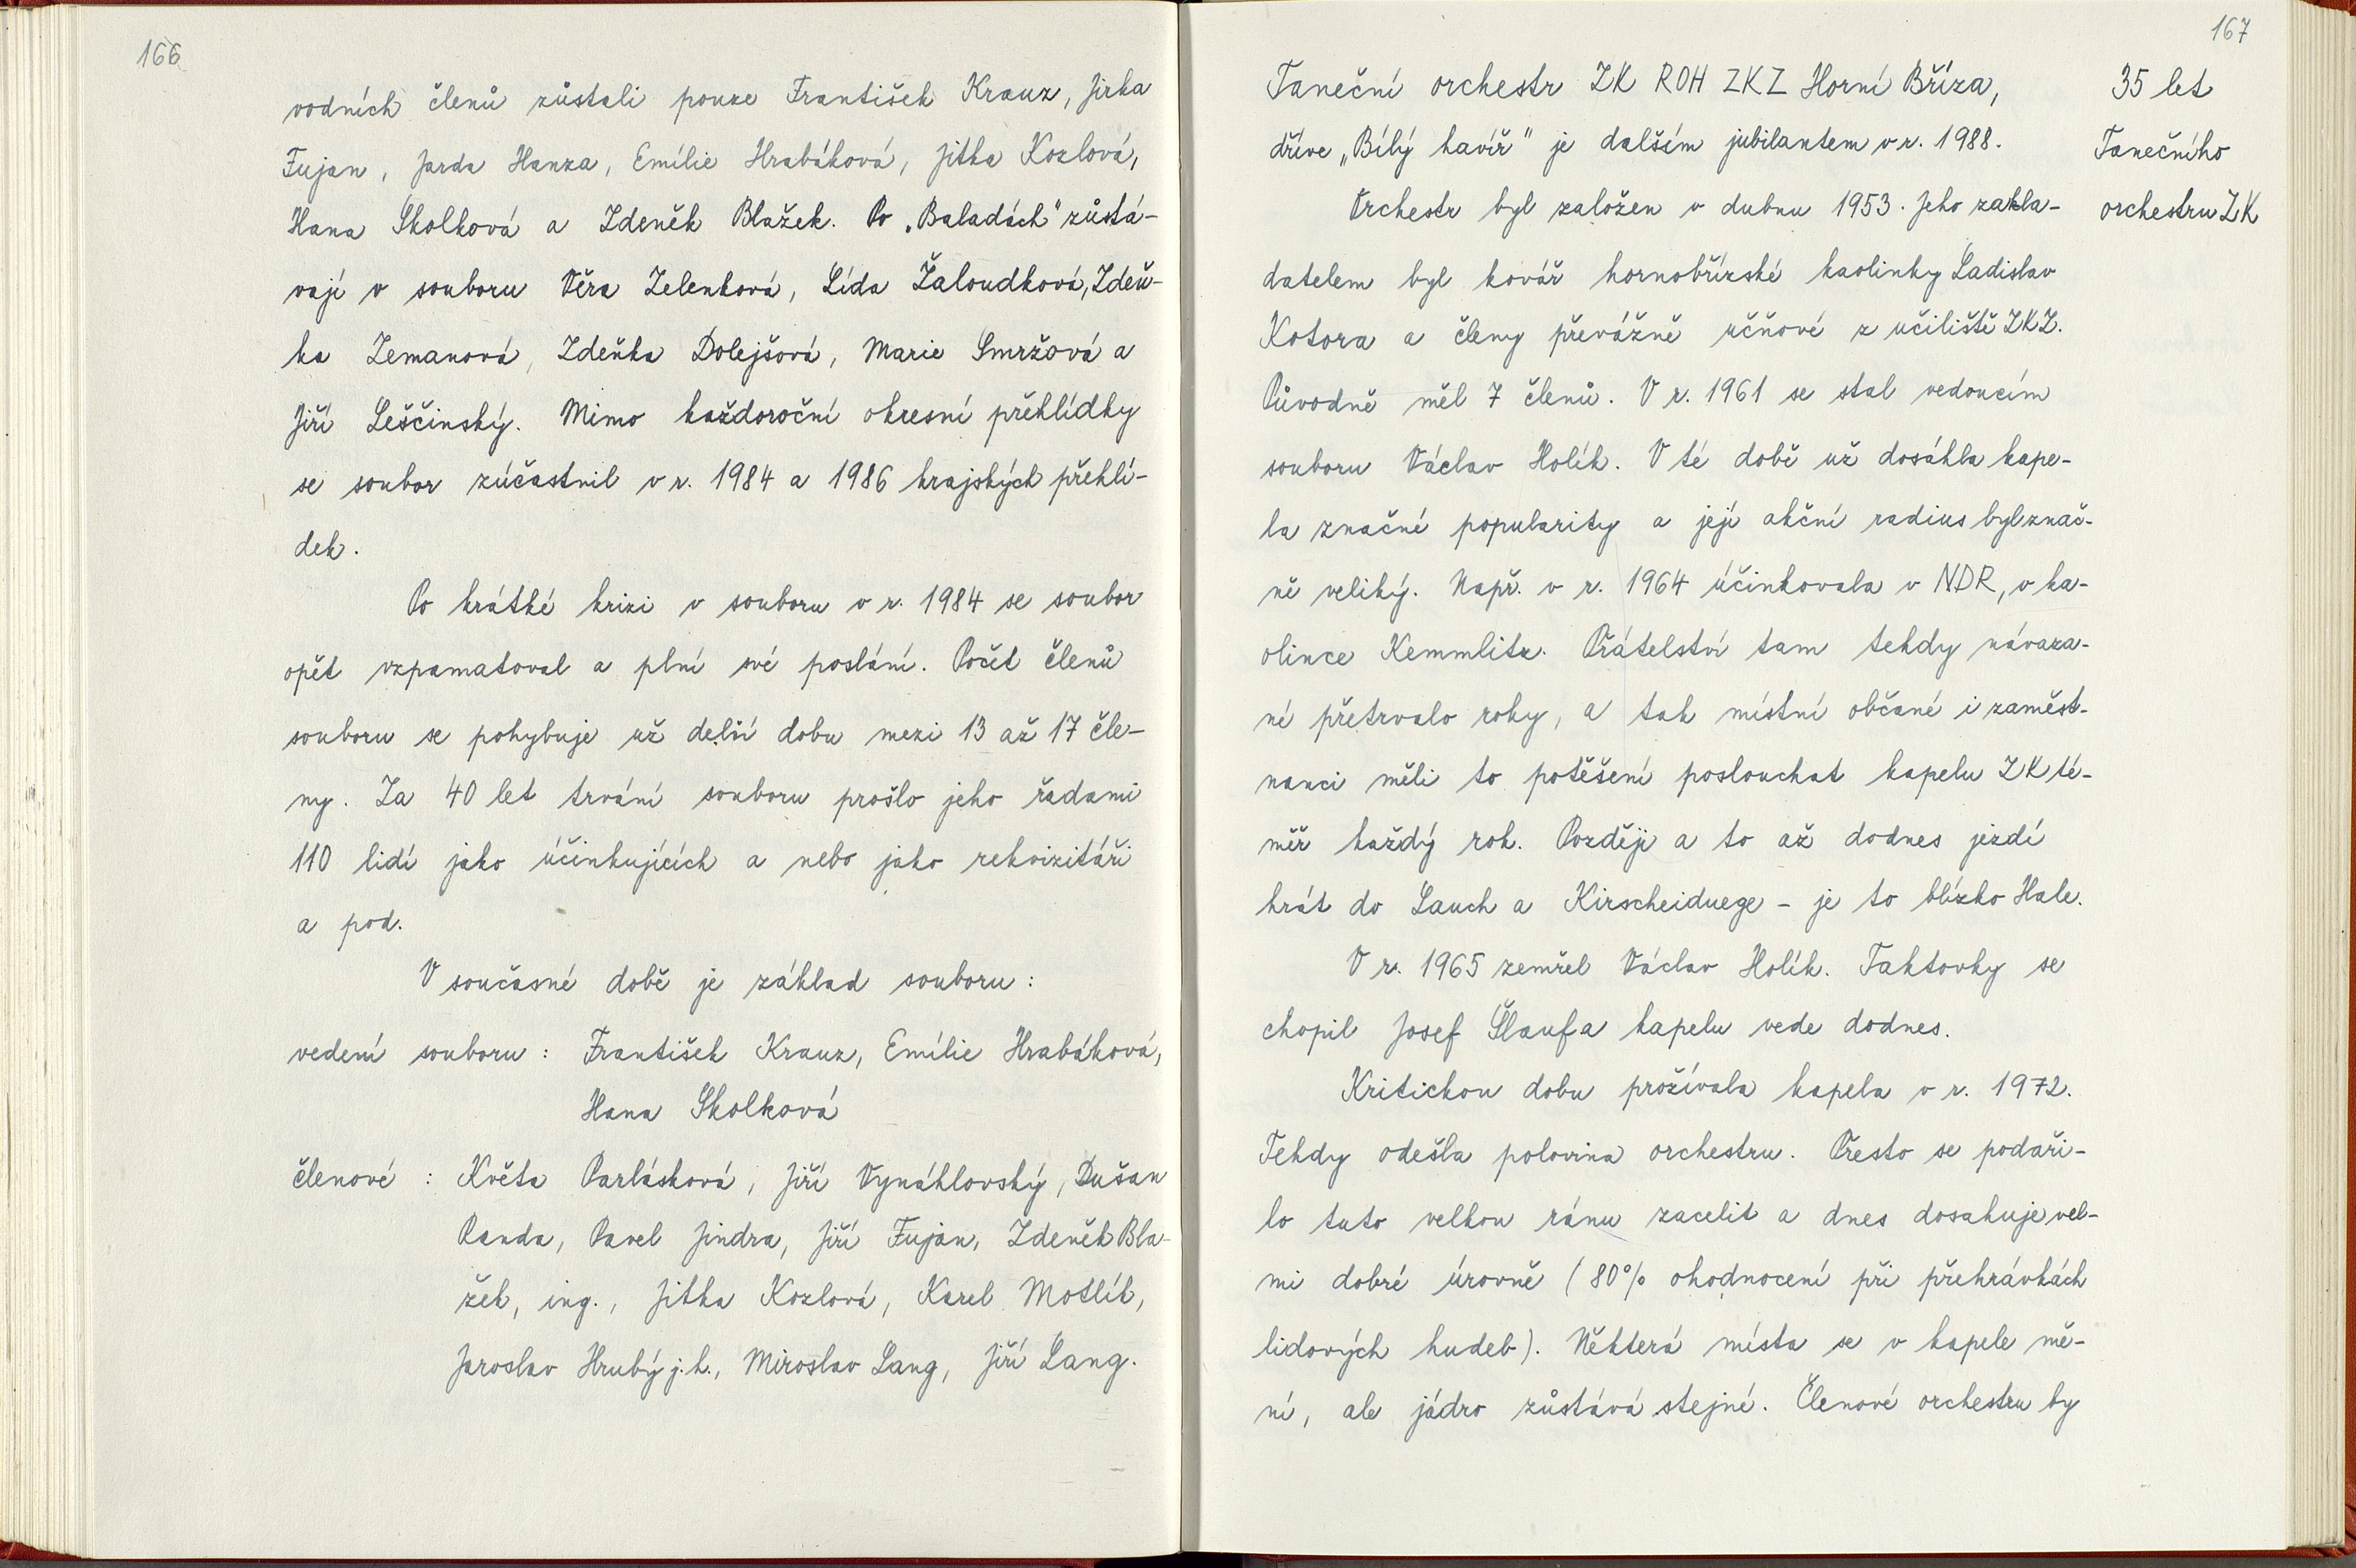 166
vodních členů zůstali pouze František Krauz, Jirka
Fujan, Jarda Hanza, Emílie Hrabáková, Jitka Kozlová,
Hana Skolková a Zdeněk Blažek. Po „Baladách" zůstá-
vají v souboru Věra Zelenková, Lída Žaloudková, Zdeň-
ka Zemanová, Zdeňka Dolejšová, Marie Smržová a
Jiří Leščinský. Mimo každoroční okresní přehlídky
se soubor zúčastnil v r. 1984 a 1986 krajských přehlí-
dek.
Po krátké krizi v souboru v r. 1984 se soubor
opět vzpamatoval a plní své poslání. Počet členů
souboru se pohybuje už delší dobu mezi 13 až 17 čle-
ny. Za 40 let trvání souboru prošlo jeho řadami
110 lidí jako účinkujících a nebo jako rekvizitáři
a pod.
V současné době je základ souboru :
vedení souboru : František Krauz, Emílie Hrabáková,
Hana Skolková
členové : Květa Parlásková, Jiří Vynáhlovský, Dušan
Panda, Pavel Jindra, Jiří Fujan, Zdeněk Bla-
žek, ing., Jitka Kozlová, Karel Motlík,
Jaroslav Hrubý j.h., Miroslav Lang, Jiří Lang.
167
Taneční orchestr ZK ROH ZKZ Horní Bříza,
dříve „Bílý havíř" je dalším jubilantem v r. 1988.
Orchestr byl založen v dubnu 1953. Jeho zakla-
datelem byl kovář hornobřízské kaolinky Ladislav
Kotora a členy převážně učňové z učiliště ZKZ.
Původně měl 7 členů. V r. 1961 se stal vedoucím
souboru Václav Holík. V té době už dosáhla kape-
la značné popularity a její akční radius byl znač-
ně veliký. Např. v r. 1964 účinkovala v NDR, v ka-
olince Kemmlitz. Přátelství tam tehdy návaza-
né přetrvalo roky, a tak místní občané i zaměst-
nanci měli to potěšení poslouchat kapelu ZK té-
měř každý rok. Později a to až dodnes jezdí
hrát do Lauch a Kirscheiduege - je to blízko Hale.
V r. 1965 zemřel Václav Holík. Taktovky se
chopil Josef Šlaufa kapelu vede dodnes.
Kritickou dobu prožívala kapela v r. 1972.
Tehdy odešla polovina orchestru. Přesto se podaři-
lo tuto velkou ránu zacelit a dnes dosahuje vel-
mi dobré úrovně (80% ohodnocení při přehrávkách
lidových hudeb). Některá místa se v kapele mě-
ní, ale jádro zůstává stejné. Členové orchestru by
35 let
Tanečního
orchestru ZK